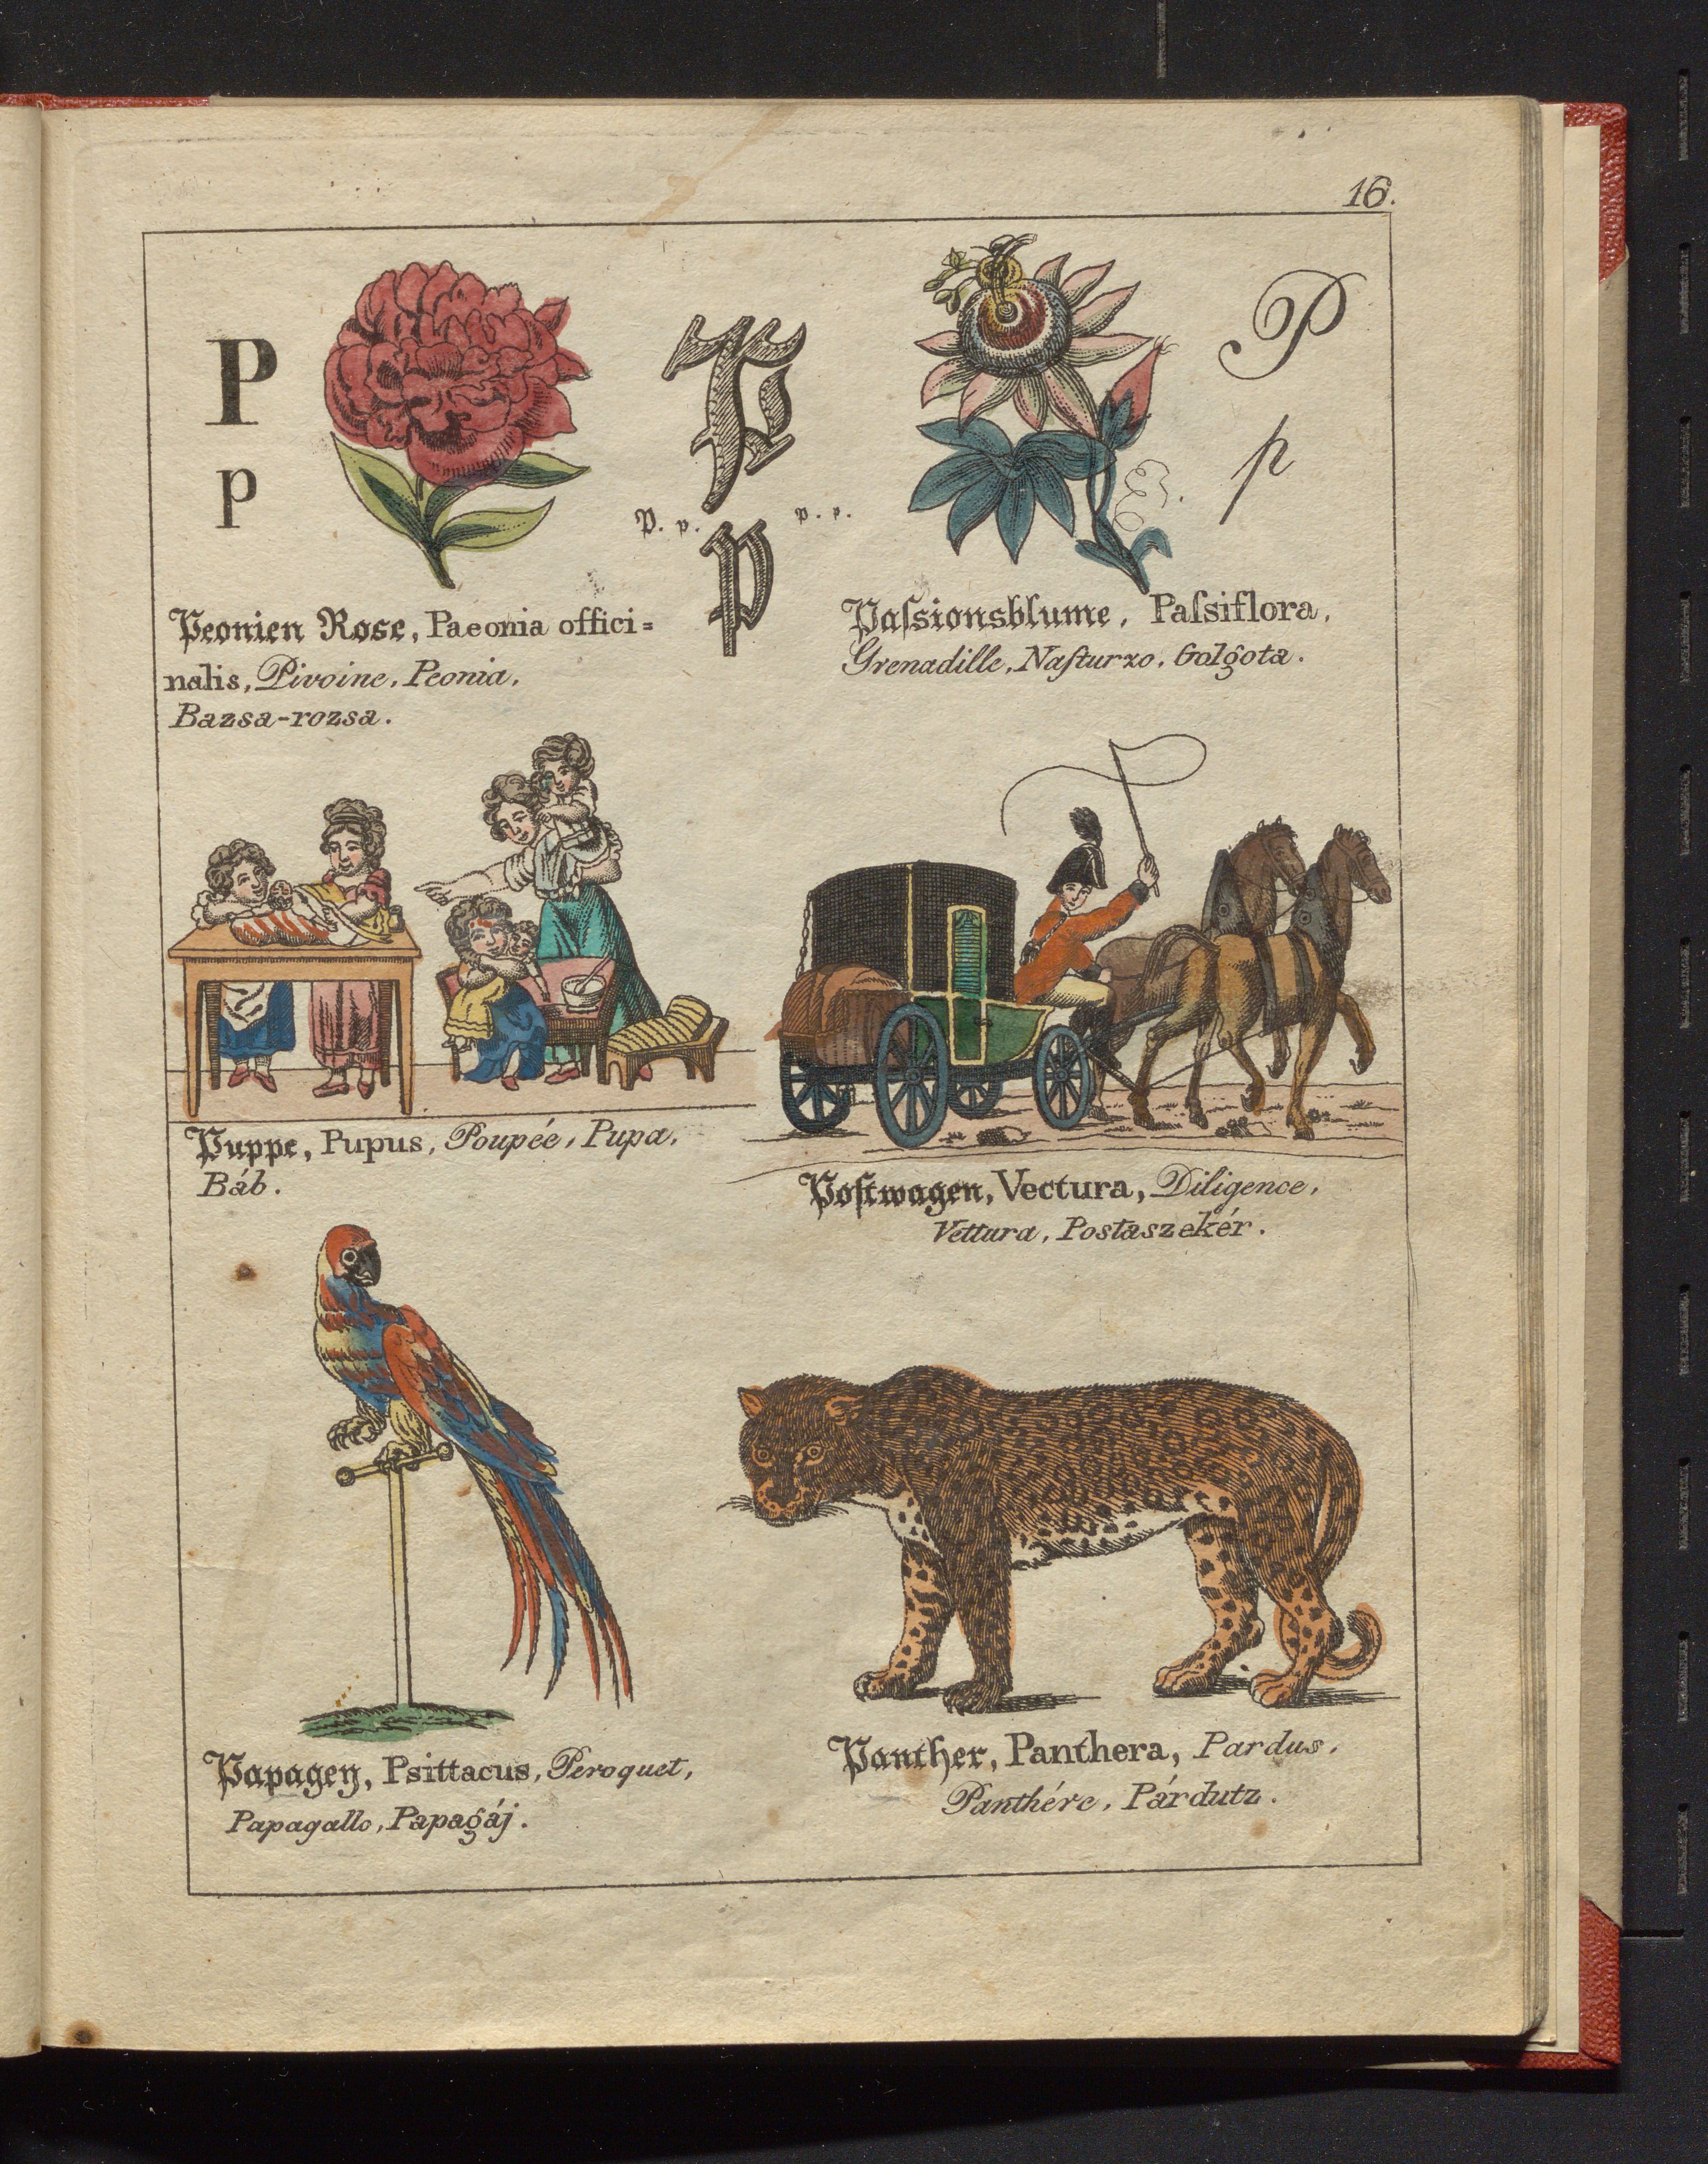 16.
P
p
P
p
P. p.
p. p.
P
p
Peonien Rose, Paeonia offici=
nalis, Pivoine, Peonia,
Bazsa-rozsa.
Paſsionsblume, Paſsiflora,
Grenadille, Naſturzo, Golgota.
Puppe, Pupus, Poupée, Pupa,
Báb.
Poſtwagen, Vectura, Diligence,
Vettura, Postaszekér.
Papagey, Psittacus, Peroquet,
Papagallo, Papagáj.
Panther, Panthera, Pardus,
Panthére, Párdutz.